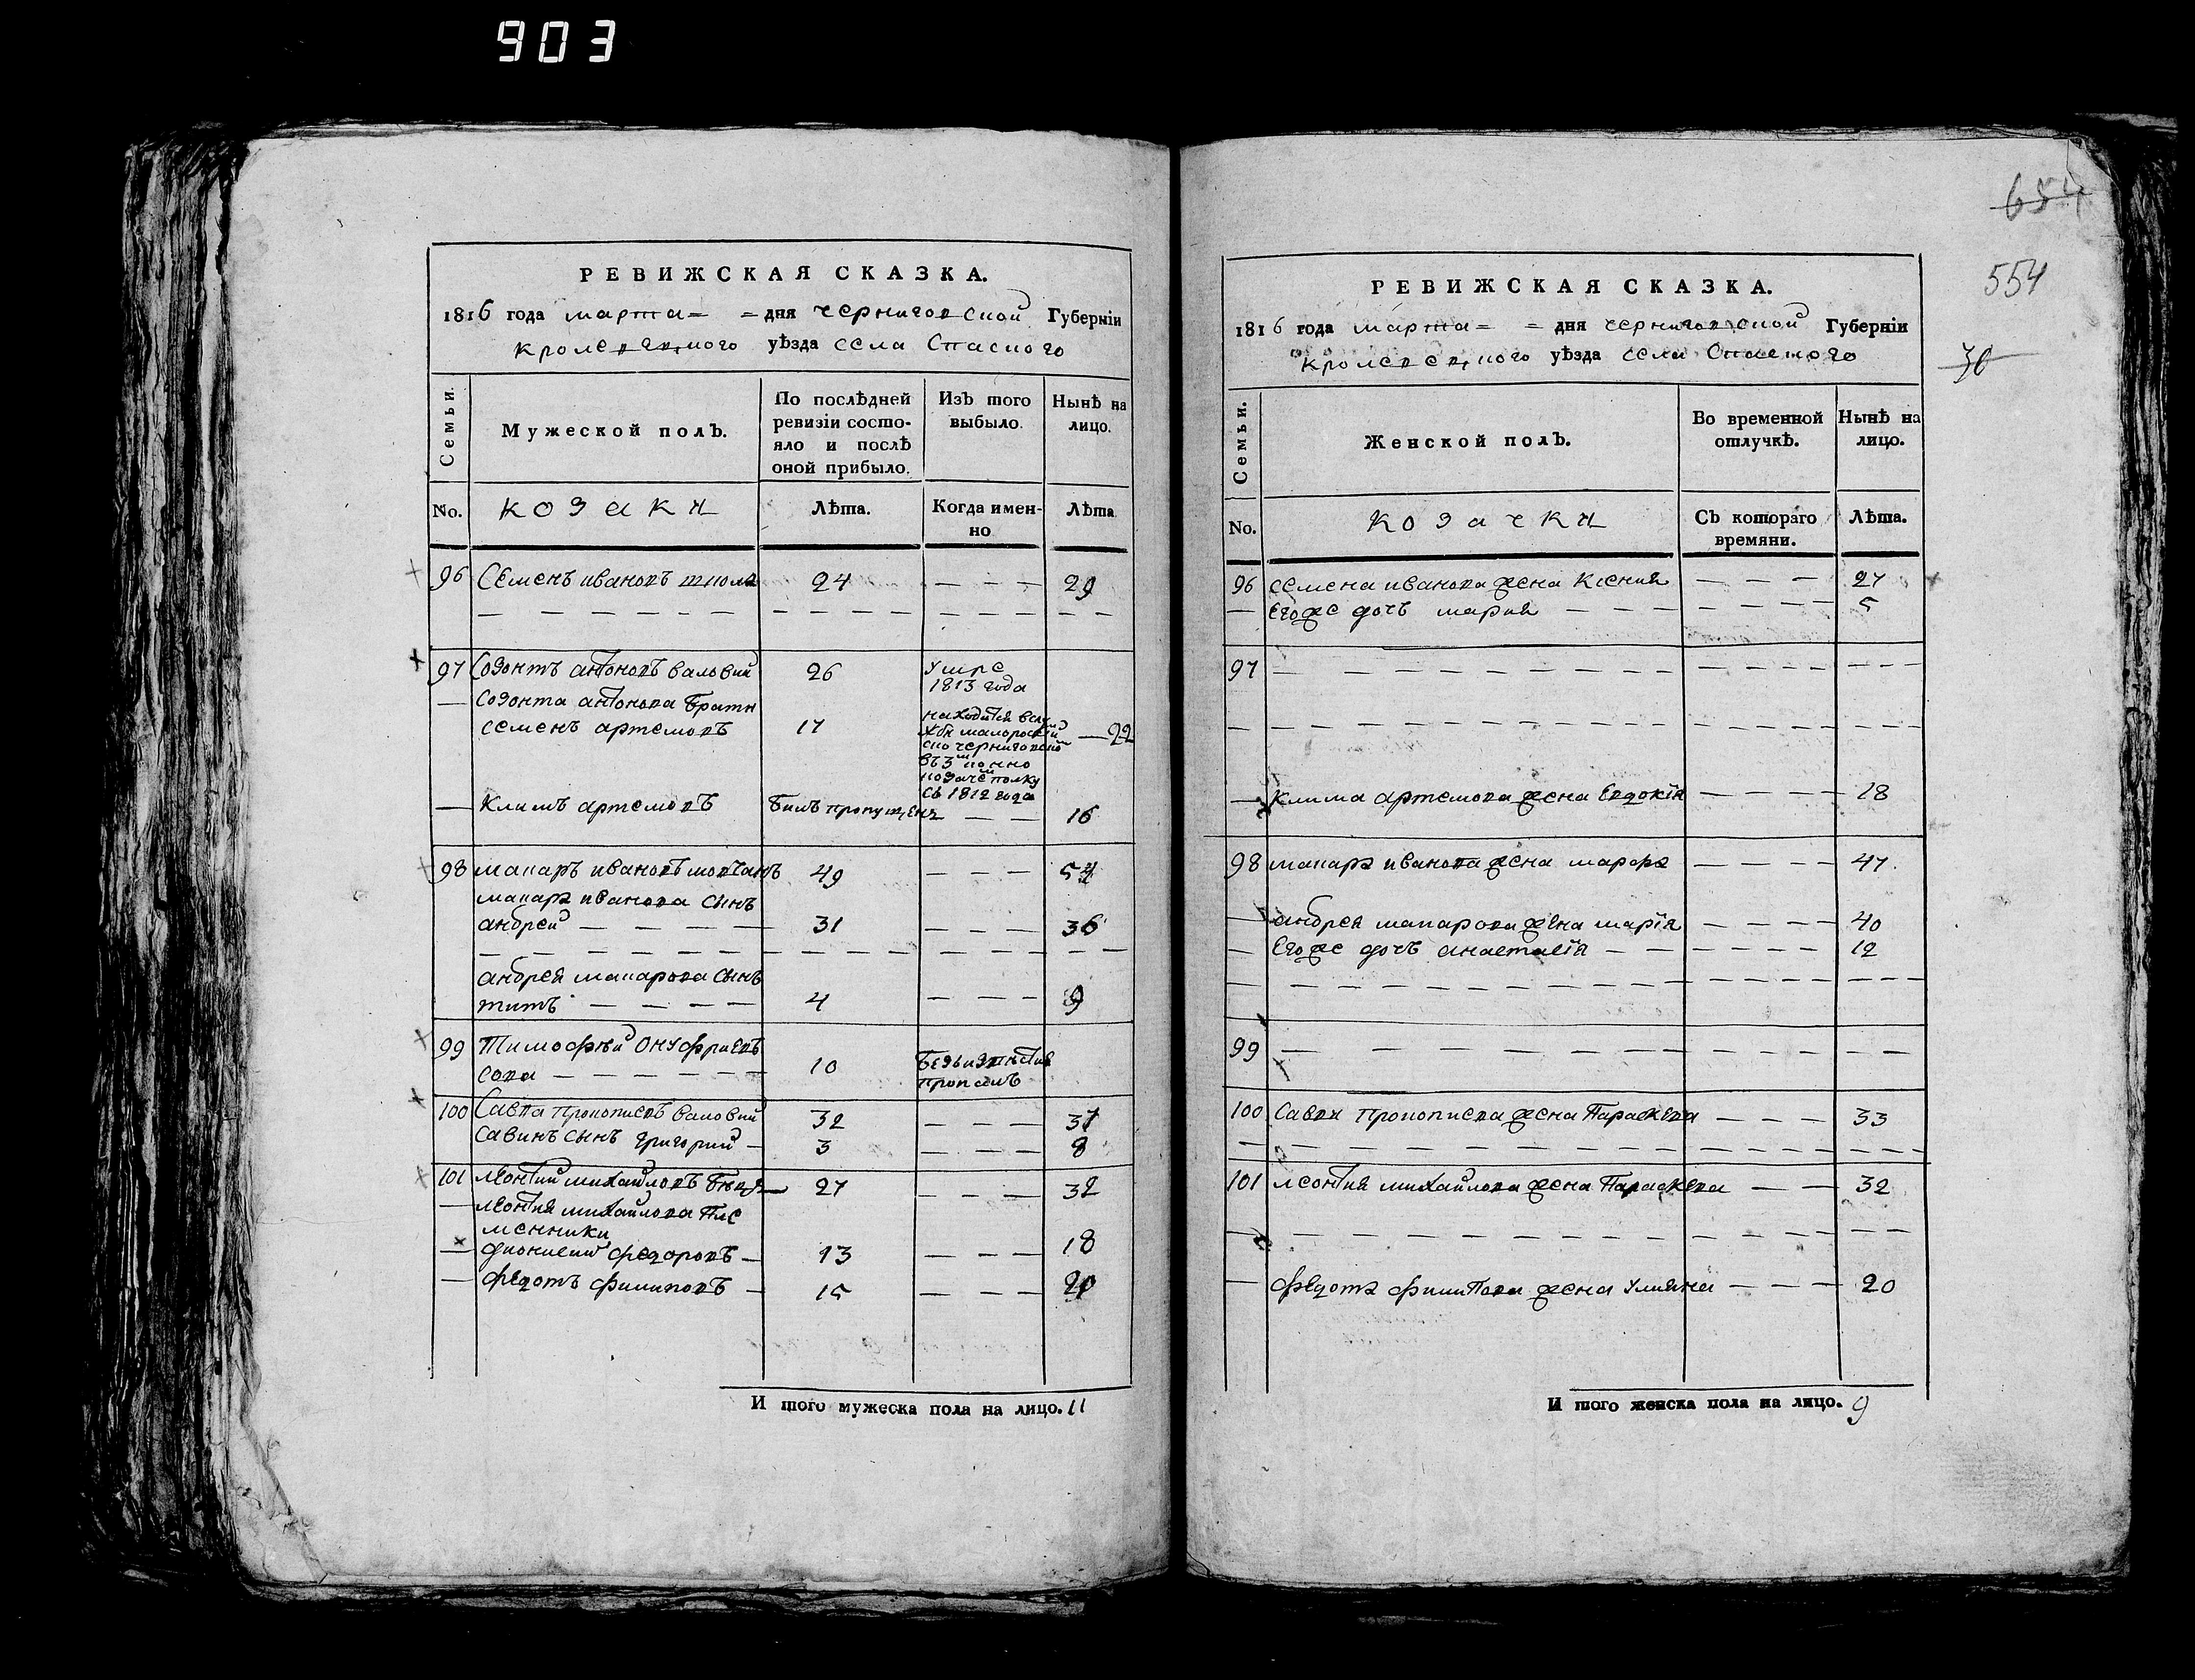 903
РЕВИЖСКАЯ СКАЗКА.
1816 года марта = = дня черниговской Губерніи
кролевецкого уѣзда села Спаского
Семьи.
Мужеской полъ.
По послѣдней ревизіи состо-
яло и послѣ
оной прибыло.
Изъ того
выбыло.
Нынѣ на
лицо.
No. козаки Лѣта. Когда имен-
но Лѣта
96 Семенъ ивановъ 24 — — — 29
97 Созонтъ антоновъ валовий 26 умре
1813 года
— Созонта антонова братя
семенъ артемовъ 17 — 22
находится
съ 1812 года
— Климъ артемовъ билъ пропущенъ — — 16
98 макаръ ивановъ мовчанъ 49 — — — 54
макара иванова сынъ
андрей — — — — 31 — — — 36
андрея макарова сынъ
титъ — — — — 4 — — — 9
99 Тимофѣй Онуфриевъ
сова — — — — — 10 безъизвѣстно
пропалъ
100 Савва прокопиевъ валовий 32 — — — 37
Савинъ сынъ григорий — 3 — — — 8
101 леонтий михайловъ 27 — — — 32
— леонтия михайлова пле
менники
— дионисий федоровъ — 13 — — — 18
— федотъ филиповъ — 15 — — — 20
И того мужеска пола на лицо. 11
654
554
30
РЕВИЖСКАЯ СКАЗКА.
1816 года марта = = дня черниговской Губерніи
кролевецкого уѣзда села Спаского
Семьи.
Женской полъ.
Во временной
отлучкѣ.
Нынѣ на
лицо.
No. козачки Съ котораго
времяни. Лѣта.
96 семена иванова жена Ксения — — — 27
— Егоже дочь мария — — — — — — — 5
97 — — — — — — — —
— клима артемова жена Евдокія — — — — 18
98 макара иванова жена марфа — — — — 47.
— андрея макарова жена марія — — — — 40
— Егоже дочь анастасія — — — — — — 12
99 — — — — — — — —
100 Савви прокопиева жена Параскева — — — 33
101 леонтия михайлова жена Параскева — — 32
— федота филипова жена Улияна — — — 20
И того женска пола на лицо. 9